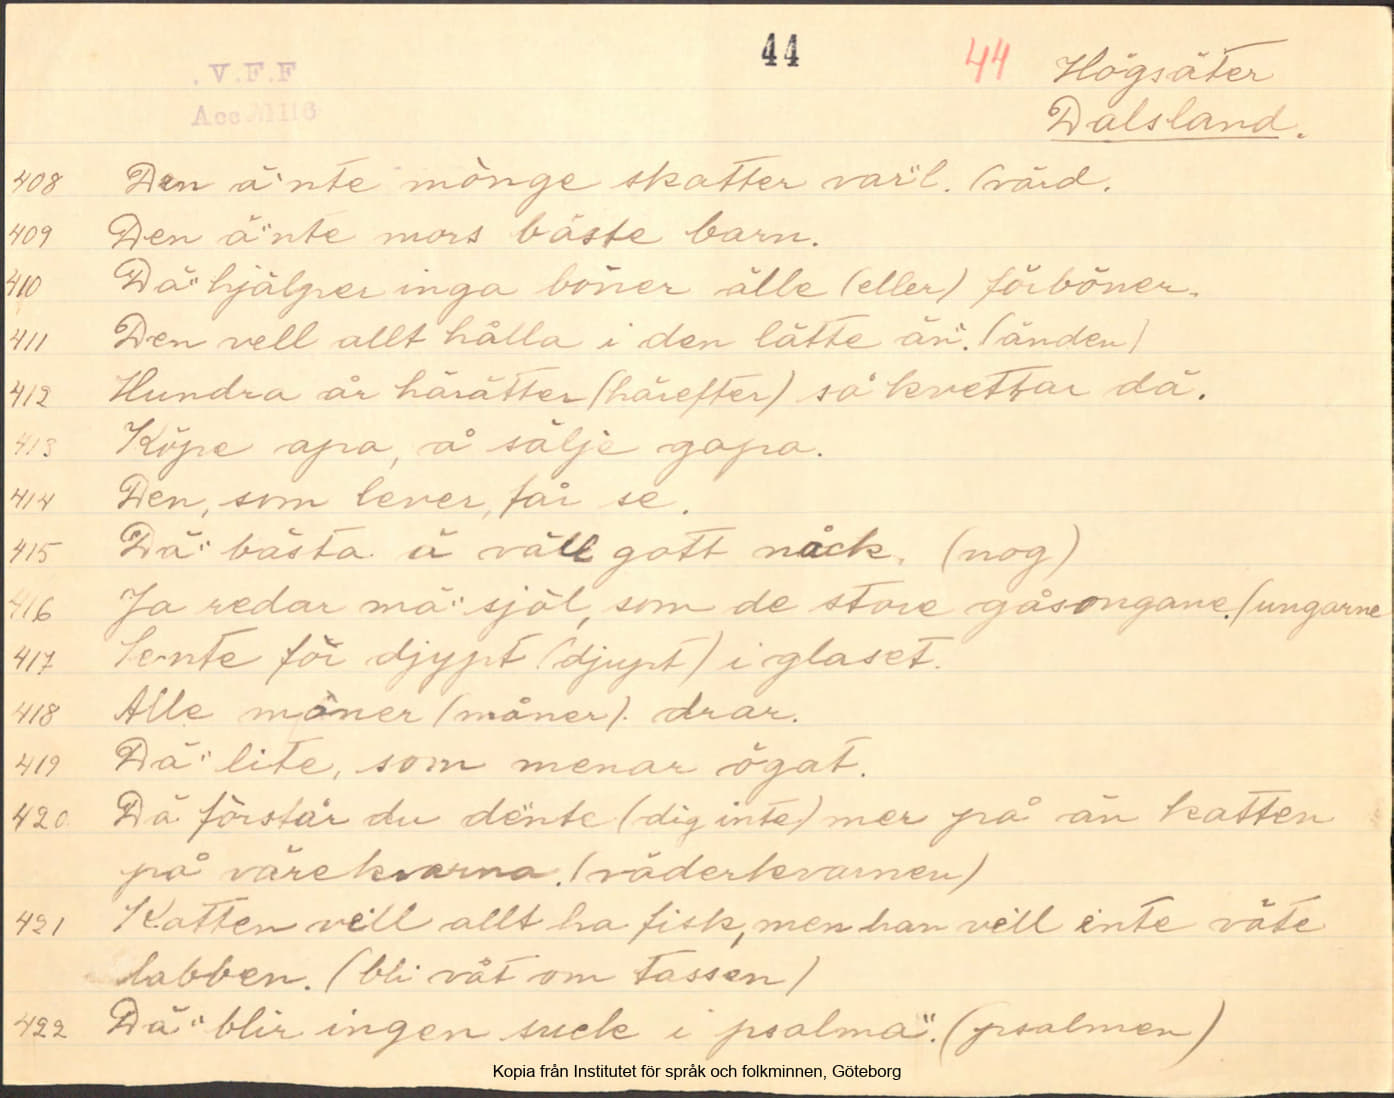 44 44 Högsäter
. V.F.F
Acc M116 Dalsland.
408 Den ä'nte mönge skatter var"l. (värd.
409 Den ä"nte mors bäste barn.
410 Dä" hjälper inga böner älle (eller) förböner.
411 Den vell allt hålla i den lätte än". (änden)
412 Hundra år härätter (härefter) så kvettar dä.
413 Köpe apa, å sälje gapa.
414 Den, som lever, får se.
415 Dä" bästa ä väll gott nåck. (nog)
416 Ja redar mä" själ, som de store gåsongane. (ungarne
417 Se nte för djypt (djupt) i glaset.
418 Alle möner (måner) drar.
419 Dä" lite, som menar ögat.
420 Dä förstår du dënte (dig inte) mer på än katten
på värekvarna. (väderkvarnen)
421 Katten vell allt ha fisk, men han vell inte väte
labben. (bli våt om tassen)
422 Dä" blir ingen suck i psalma". (psalmen)
Kopia från Institutet för språk och folkminnen, Göteborg